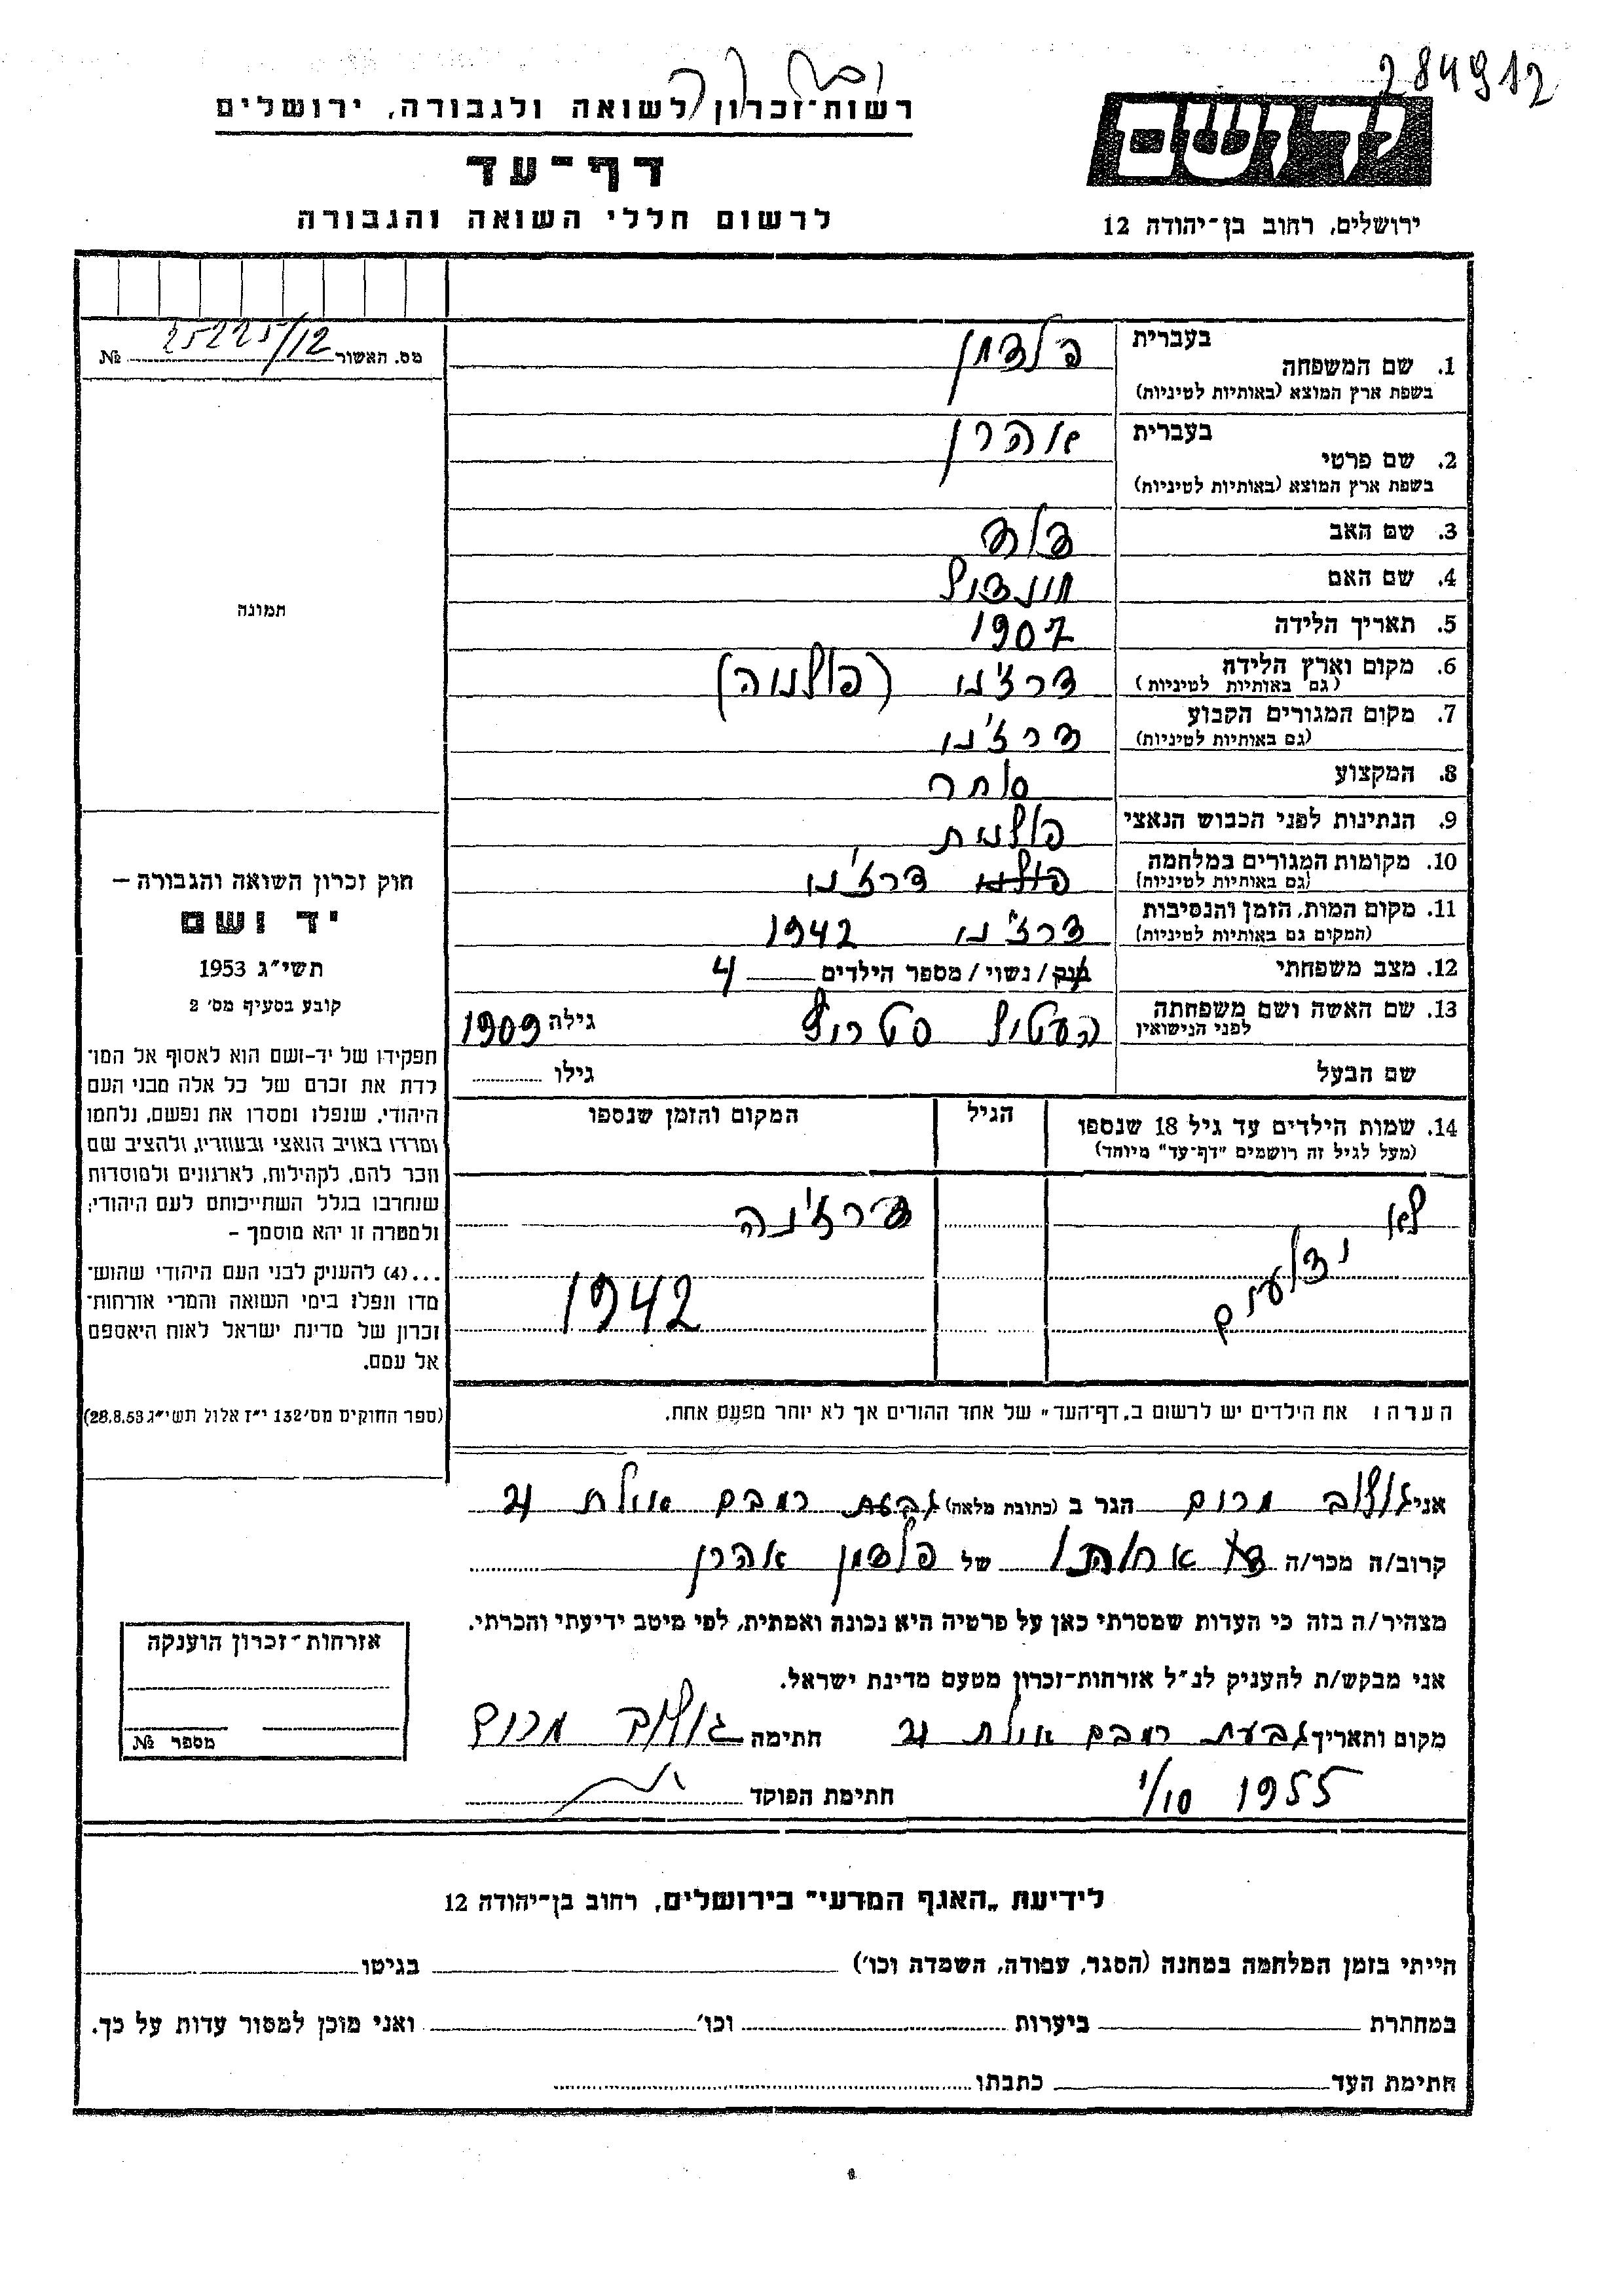 284912
רשות־זכרון לשואה ולגבורה, ירושלים
יד ושם
דף־עד
לרשום חללי השואה והגבורה
ירושלים, רחוב בן־יהודה 12
מס. האשור 25225/12 №
בעברית פלדמן
1. שם המשפחה
בשפת ארץ המוצא (באותיות לטיניות)
בעברית אהרן
2. שם פרטי
בשפת ארץ המוצא (באותיות לטיניות)
3. שם האב
4. שם האם
תמונה
5. תאריך הלידה 1907
6. מקום וארץ הלידה דרז'נו (פולניה)
(גם באותיות לטיניות)
7. מקום המגורים הקבוע דרז'נו
(גם באותיות לטיניות)
8. המקצוע סוחר
9. הנתינות לפני הכבוש הנאצי פולנית
10. מקומות המגורים במלחמה דרז'נו
(גם באותיות לטיניות)
11. מקום המות, הזמן והנסיבות דרז'נו 1942
(המקום גם באותיות לטיניות)
12. מצב משפחתי רווק / נשוי / מספר הילדים 4
13. שם האשה ושם משפחתה גילה 1909
לפני הנישואין
שם הבעל גילו
14. שמות הילדים עד גיל 18 שנספו הגיל המקום והזמן שנספו
(מעל לגיל זה רושמים "דף־עד" מיוחד)
לא דרז'נה
ידועים 1942
הערה: את הילדים יש לרשום ב„דף־העד" של אחד ההורים אך לא יותר מפעם אחת.
חוק זכרון השואה והגבורה –
יד ושם
תשי"ג 1953
קובע בסעיף מס' 2
תפקידו של יד-ושם הוא לאסוף אל המו־
לדת את זכרם של כל אלה מבני העם
היהודי, שנפלו ומסרו את נפשם, נלחמו
ומרדו באויב הנאצי ובעוזריו, ולהציב שם
וזכר להם, לקהילות, לארגונים ולמוסדות
שנחרבו בגלל השתייכותם לעם היהודי;
ולמטרה זו יהא מוסמך –
...(4) להעניק לבני העם היהודי שהוש־
מדו ונפלו בימי השואה והמרי אזרחות־
זכרון של מדינת ישראל לאות היאספם
אל עמם.
(ספר החוקים מס' 132 י"ז אלול תשי"ג 28.8.53)
אני גולוב מרים הגר ב (כתובת מלאה) גבעת רמבם אילת 21
קרוב/ה מכר/ה של פלדמן אהרן
מצהיר/ה בזה כי העדות שמסרתי כאן על פרטיה היא נכונה ואמתית, לפי מיטב ידיעתי והכרתי.
אני מבקש/ת להעניק לנ"ל אזרחות־זכרון מטעם מדינת ישראל.
מקום ותאריך גבעת רמבם אילת 21 חתימה גולוב מרים
1/10 1955 חתימת הפוקד
אזרחות־זכרון הוענקה
מספר №
לידיעת „האגף המדעי" בירושלים, רחוב בן־יהודה 12
הייתי בזמן המלחמה במחנה (הסגר, עבודה, השמדה וכו') בגיטו
במחתרת ביערות וכו' ואני מוכן למסור עדות על כך.
חתימת העד כתבתו